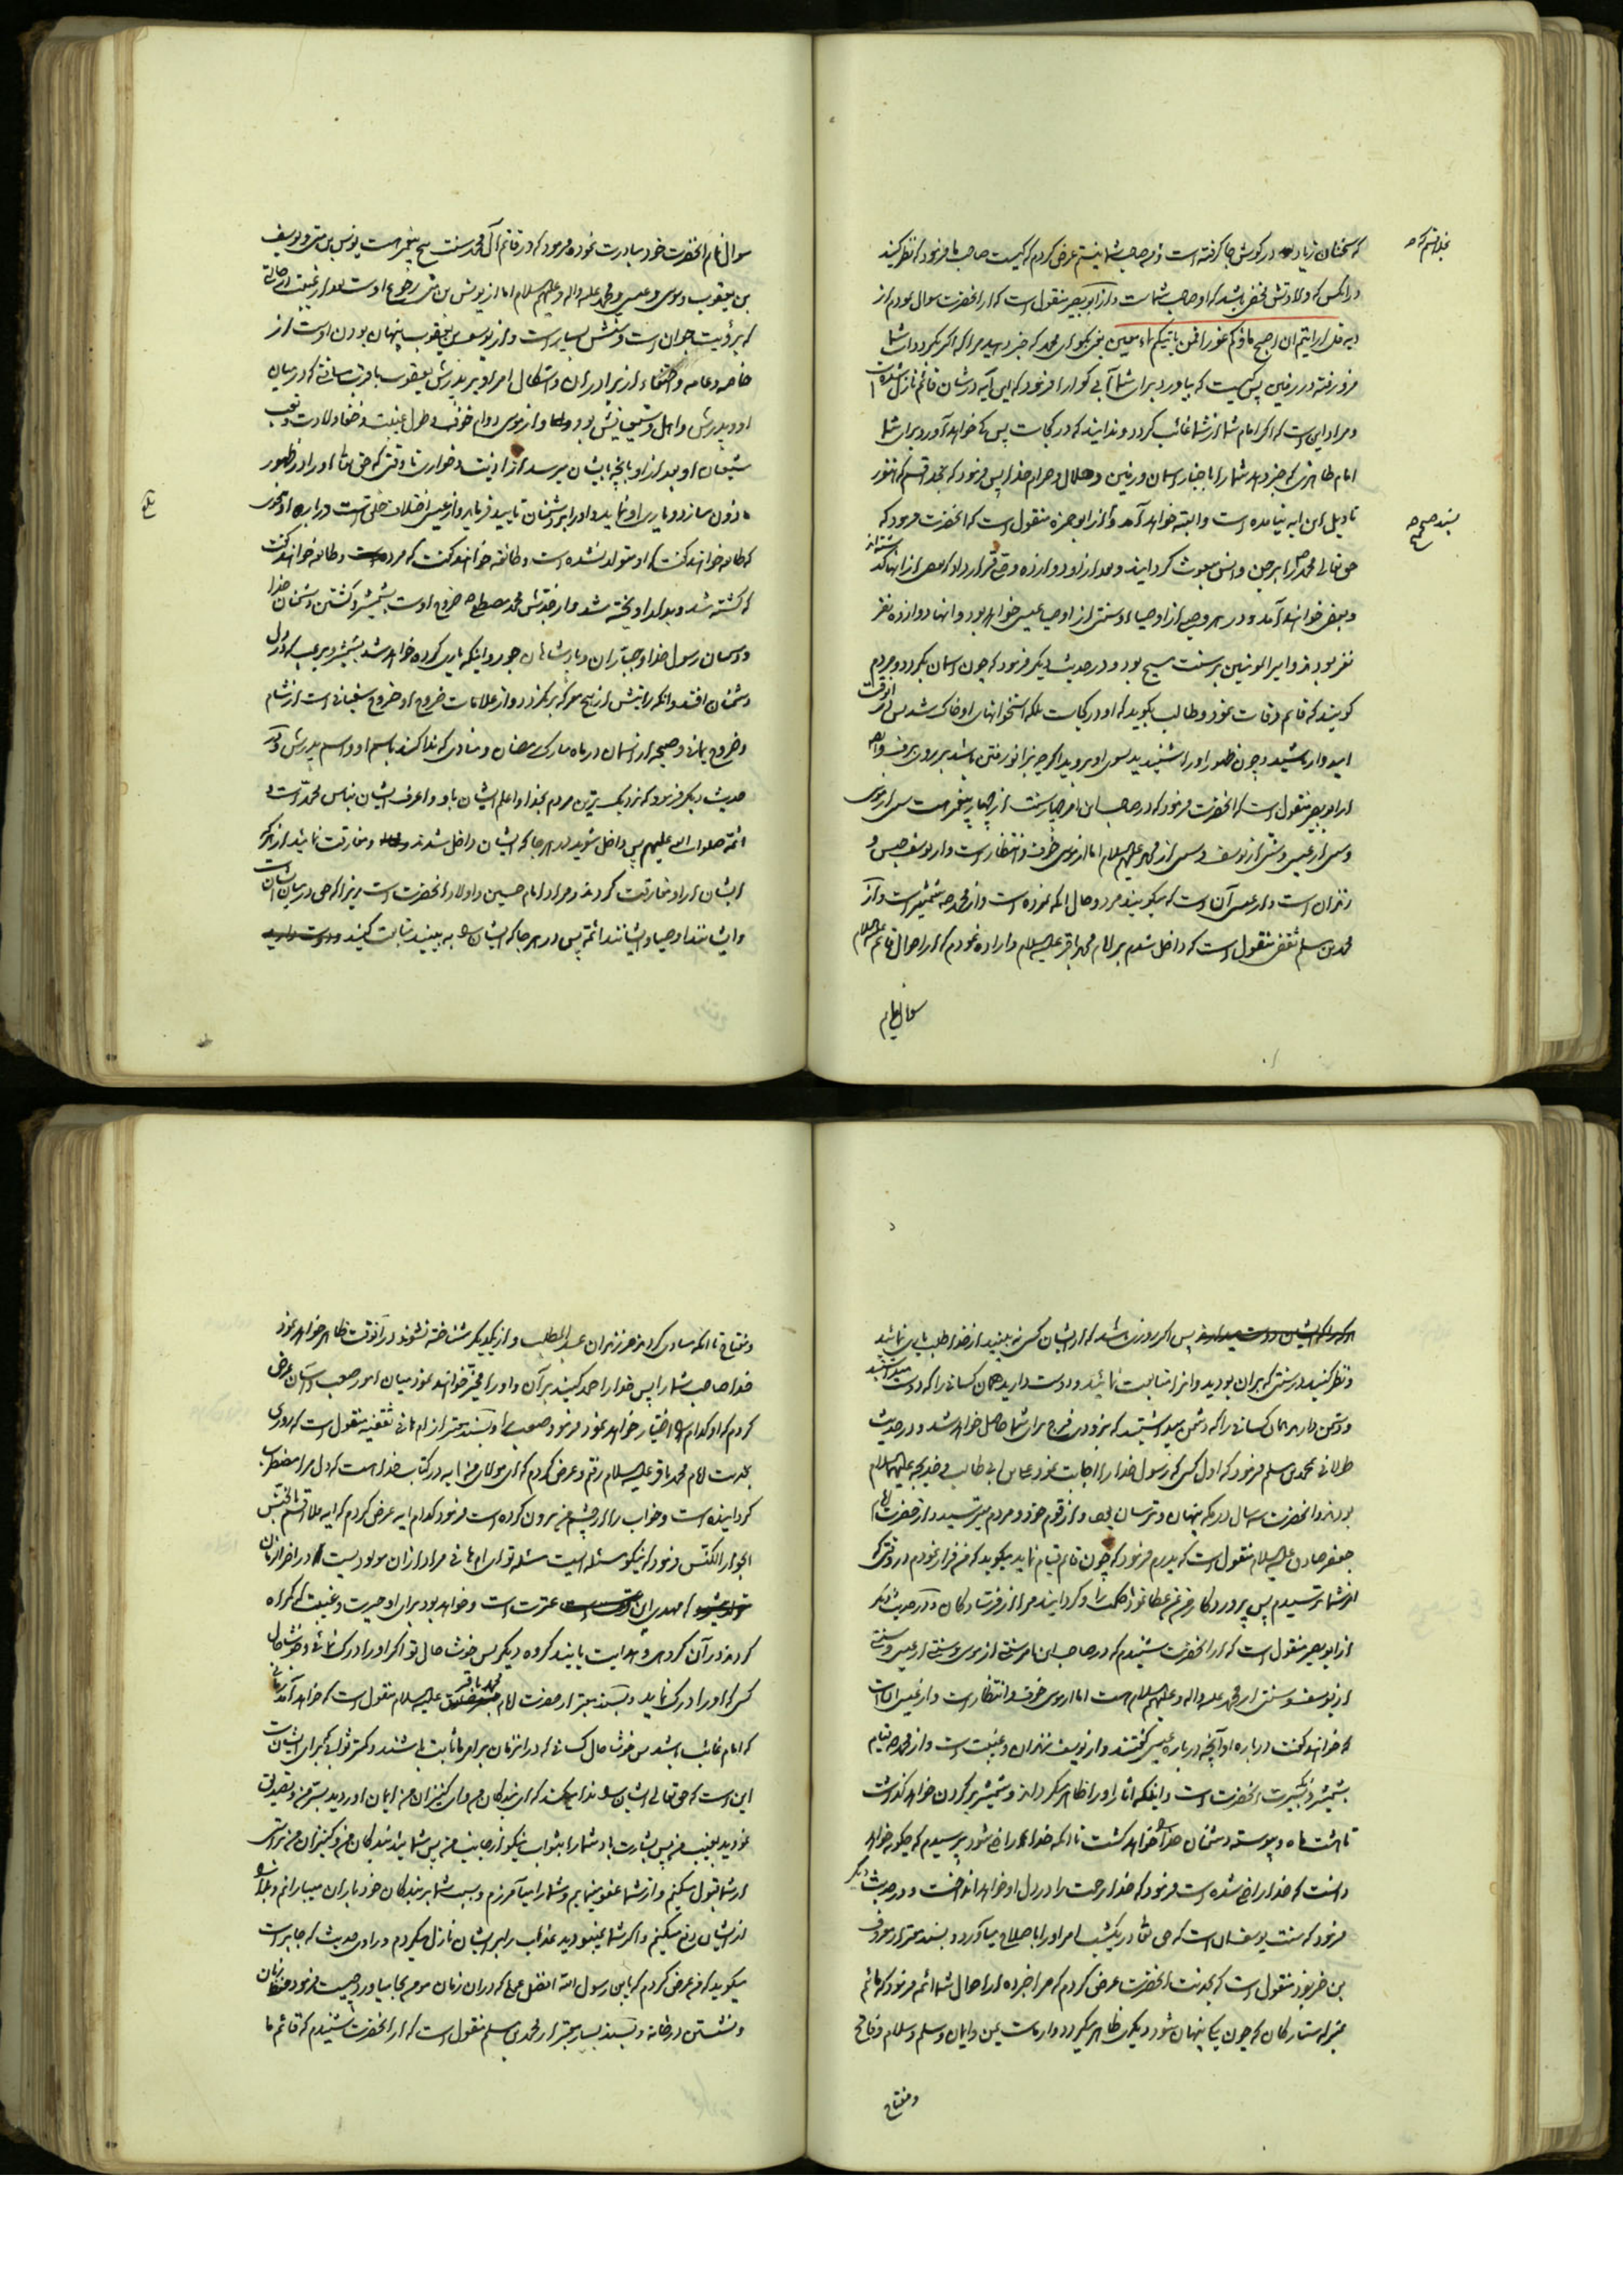 که سخنان زیاد در گوش جا گرفته است و نه صاحب شما نیستم عرض کردم که کیست صاحب ما فرمود که نظر کنید
در آنکس که ولادتش مخفی باشد که او صاحب شماست و از ابو بصیر منقول است که از آنحضرت سوال نمودم از
قل ارایتم ان اصبح ماؤکم غورا فمن یاتیکم بماء معین یعنی بگو ای محمد که خبر دهید مرا که اگر بگردد آب شما
فرو رفته در زمین پس کیست که بیاورد برای شما آبی گوارا فرمود که این آیه در شان قائم نازل شده است
و مراد این است که اگر امام شما از شما غائب گردد و ندانید که در کجاست پس که خواهد آورد برای شما
امام ظاهری که خبر دهد شما را باخبار آسمان و زمین و حلال و حرام خدا پس فرمود که بخدا قسم که هنوز
تاویل این آیه نیامده است و البته خواهد آمد و از ابو حمزه منقول است که آنحضرت فرمود که
حق تعالی محمد را بر جن و انس مبعوث گردانید و بعد از او دوازده وصی قرار داد که بعضی از آنها گذشته اند
و بعضی خواهند آمد و در هر وصی از اوصیاء و سنتی از اوصیاء عیسی خواهد بود و آنها دوازده نفر
نفر بودند و امیر المومنین بر سنت مسیح بود و در حدیث دیگر فرمود که چون آسمان بگردد و مردم
گویند که قائم وفات نمود و طالب بگوید که او در کجاست بلکه استخوانهای او خاک شد پس در آنوقت
امیدوار باشید و چون ظهور او را شنیدید بسوی او بروید اگرچه بزانو رفتن باشد بر روی برف و ایضا
از ابو بصیر منقول است که آنحضرت فرمود که در صاحب این امر چهار سنت از چهار پیغمبر هست سنتی از موسی
و سنتی از عیسی و سنتی از یوسف و سنتی از محمد علیهم السلام اما از موسی خوف و انتظار است و از یوسف حبس و
زندان است و از عیسی آن است که میگویند مرد و حال آنکه نمرده است و از محمد ص شمشیر است و از
محمد بن مسلم ثقفی منقول است که داخل شدم بر امام محمد باقر علیه السلام و اراده نمودم که از احوال قائم علیه السلام
سوال نمایم
بسند صحیح
سوال نمایم آنحضرت خود مبادرت نموده فرمود که در قائم آل محمد سنت پنج پیغمبر هست یونس بن متی و یوسف
بن یعقوب و موسی و عیسی و محمد صلی الله علیه و اله و علیهم السلام اما از یونس بن متی رجوع اوست بعد از غیبت از حالتی
که برؤیت جوان است و سنش بسیار است و از یوسف بن یعقوب پنهان بودن اوست از
خاصه و عامه و اختفاء از برادران و اشکال امر او بر پدرش یعقوب با قرب مسافتی که در میان
او و پدرش و اهل و شیعیانش بود و از موسی دوام خوف و طول غیبت و خفاء ولادت و تعب
شیعیان او بعد از او بآنچه بایشان برسد از اذیت و خواری تا وقتی که حق تعالی او را در ظهور
ماذون سازد و یاری او نماید و او را بر دشمنان تایید فرماید و از عیسی اختلاف خلق است درباره او بنحوی
که طائفه خواهند گفت که او متولد نشده است و طائفه خواهند گفت که مرده است و طائفه خواهند گفت
که کشته شد و بدار آویخته شد و از جدش محمد مصطفی ص خروج اوست بشمشیر و کشتن دشمنان خدا
و دشمنان رسول خدا و جباران و پادشاهان جور و اینکه یاری کرده خواهد شد بشمشیر و برعب که در دل
دشمنان افتد و آنکه رایتش از هیچ معرکه برنگردد و از علامات خروج او خروج سفیانی است از شام
و خروج یمانی و صیحه از آسمان در ماه مبارک رمضان و منادی که ندا کند باسم او و اسم پدرش و در
حدیث دیگر فرمود که نزدیک ترین مردم بخدا و اعلم ایشان باو و اعرف ایشان بناس محمد است و
ائمه صلوات الله علیهم پس داخل شوید در هرجا که ایشان داخل شدند و مفارقت نمائید از هرکه
ایشان از او مفارقت کردند و مراد امام حسین و اولاد آنحضرت است زیرا که حق در میان ایشان است
و ایشانند اوصیاء و ایشانند ائمه پس در هرجا که ایشان را به بینید متابعت کنید
پس اگر روزی باشد که از ایشان کسی نه بینید از خدا طلب یاری نمائید
و نظر کنید در سنتی که بر آن بودید و آنرا متابعت نمائید و دوست دارید همان کسانی را که دوست میداشتید
و دشمن دارید همان کسانی را که دشمن میداشتید که بزودی فرج برای شما حاصل خواهد شد و در حدیث
طولانی محمد بن مسلم فرمود که اول کسی که رسول خدا را اجابت نمود علی بن ابی طالب و خدیجه علیهما السلام
بودند و آنحضرت سه سال در مکه پنهان و ترسان بود و از قوم خود و مردم میترسید و از حضرت امام
جعفر صادق علیه السلام منقول است که پدرم فرمود که چون قائم قیام نماید میگوید که من فرار نمودم در وقتی که
از شما ترسیدم پس پروردگار من بمن عطا نمود حکمت را و گردانید مرا از فرستادگان و در حدیث دیگر
از ابو بصیر منقول است که از آنحضرت شنیدم که در صاحب این امر سنتی از موسی و سنتی از عیسی و سنتی
از یوسف و سنتی از محمد صلی الله علیه و اله و علیهم السلام هست اما از موسی خوف و انتظار است و از عیسی آن است
که خواهند گفت درباره او آنچه درباره عیسی گفتند و از یوسف زندان و غیبت است و از محمد ص قیام
بشمشیر و سیرت آنحضرت است و اینکه آثار او را ظاهر میگرداند و شمشیر بر گردن خواهد گذاشت
تا هشت ماه و پیوسته دشمنان خدا را خواهد کشت تا آنکه خدا راضی شود پرسیدم که چگونه خواهد
دانست که خدا راضی شده است فرمود که خدا رحمت را در دل او خواهد انداخت و در حدیث دیگر
فرمود که سنت یوسف آن است که حق تعالی در یکشب امر او را باصلاح میآورد و بسند معتبر از معروف
بن خربوذ منقول است که بخدمت آنحضرت عرض کردم که مرا خبر ده از احوال شما ائمه فرمود که مائیم
بمنزله ستارگان که چون یکی پنهان شود دیگری ظاهر میگردد و ماراست یمن و ایمان و سلم و سلام و فاتح
و مفتاح
و مفتاح تا آنکه مساوی گردند فرزندان عبد المطلب و از یکدیگر شناخته نشوند در آنوقت ظاهر خواهد نمود
خدا صاحب شما را پس خدا را حمد کنید بر آن و او را مخیر خواهند نمود میان امور صعب و آسان عرض
کردم که او کدام را اختیار خواهد نمود فرمود صعب را و بسند معتبر از ام هانی ثقفیه منقول است که روزی
بخدمت امام محمد باقر علیه السلام رفتم و عرض کردم که ای مولای من آیه در کتاب خدا هست که دل مرا مضطرب
گردانیده است و خواب را از چشم من بیرون کرده است فرمود کدام آیه عرض کردم که آیه فلا اقسم بالخنس
الجوار الکنس فرمود که نیکو مسئله ایست مسئله تو ای ام هانی مراد از آن مولودیست در آخر الزمان
مهدی این عترت است و خواهد بود برای او حیرت و غیبت که گمراه
گردند در آن گروهی و هدایت یابند گروه دیگر پس خوشا حال تو اگر او را درک نمائی و خوشا حال
کسی که او را درک نماید و بسند معتبر از حضرت امام محمد باقر علیه السلام منقول است که خواهد آمد زمانی
که امام غائب باشد پس خوشا حال کسانی که در آنزمان بر امر ما ثابت باشند و کمتر ثوابی که برای ایشان است
این است که حق تعالی ایشان را ندا میکند که ای بندگان من و ای کنیزان من ایمان آوردید بسر من و تصدیق
نمودید بغیب من پس بشارت باد شما را بثواب نیکو از جانب من پس شمائید بندگان من و کنیزان من براستی
از شما قبول میکنم و از شما عفو مینمایم و شما را میآمرزم و بسبب شما بر بندگان خود باران میبارانم و بلا را
از ایشان دفع میکنم و اگر شما نمیبودید عذاب را بر ایشان نازل میکردم و راوی حدیث که جابر است
میگوید که من عرض کردم که یا بن رسول الله افضل عملی که در آن زمان مومن بجا میاورد چیست فرمود حفظ زبان
و نشستن در خانه و بسند بسیار معتبر از محمد بن مسلم منقول است که از آنحضرت شنیدم که قائم ما